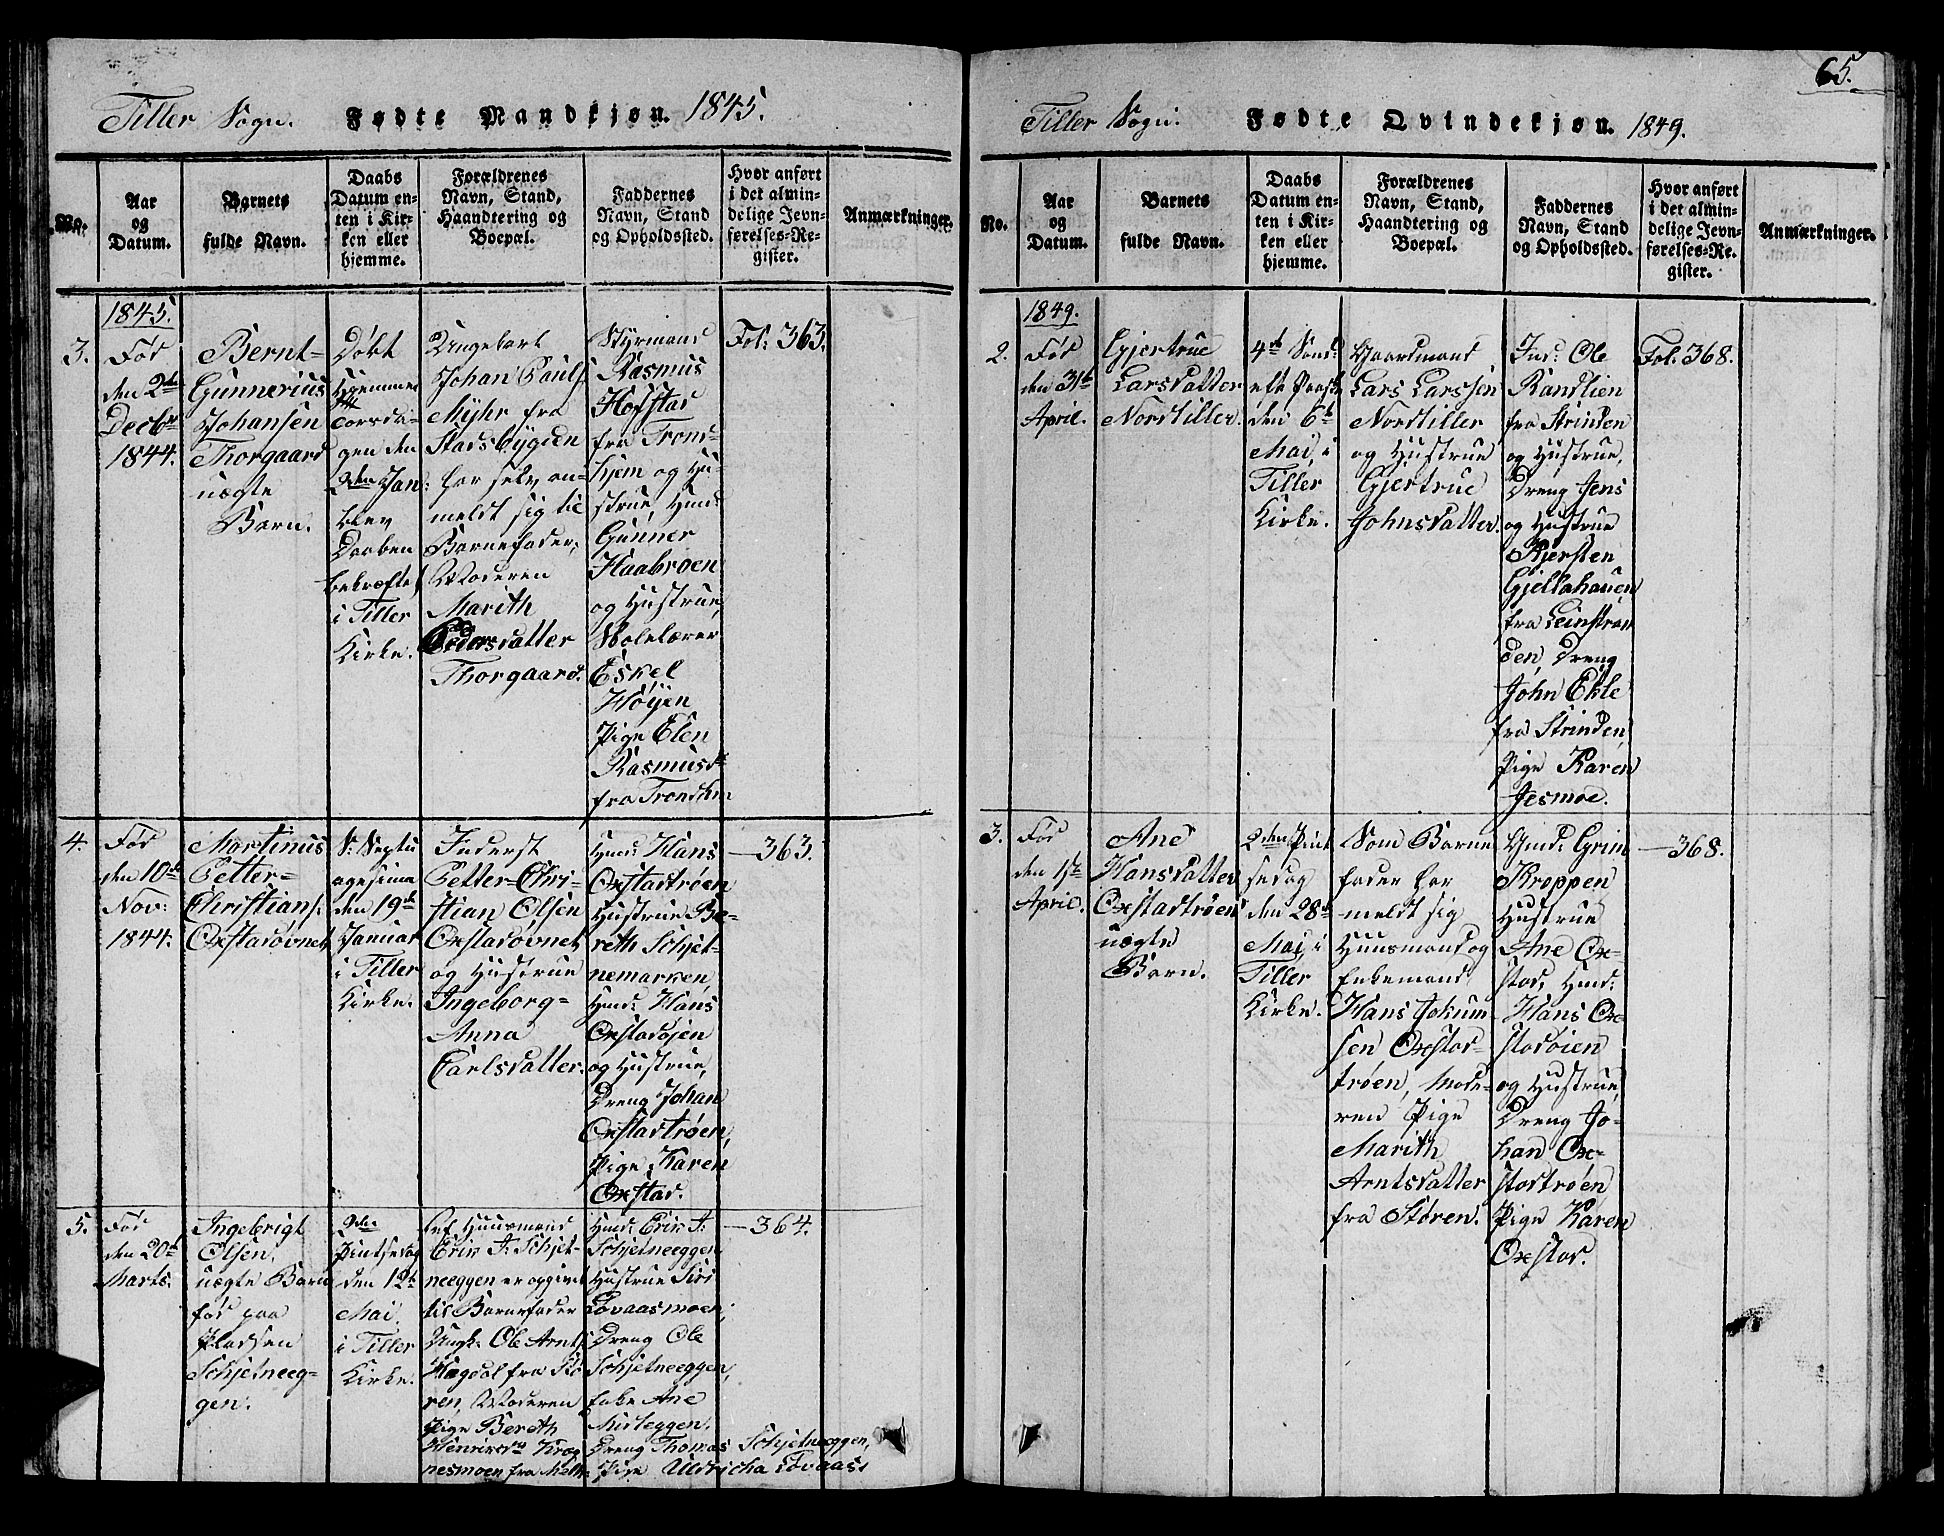 Tiller Sogn. Fødte Mandkjøn. 1845.
No.
Aar
og
Datum.
Barnets
fulde Navn.
Daabs
Datum en-
ten i Kir-
ken eller
hjemme.
Forældrenes
Navn, Stand,
Haandtering og
Boepæl.
Faddernes
Navn, Stand
og Opholdssted.
Hvor anført
i det almin-
delige Jevn-
førelses-Re-
gister.
Anmærkninger.
1845.
3.
Fød
den 2den
Decbr
1844.
Bernt-
Gunnerius
Johansen
Thorgaard
uægte
Barn.
Døbt
hjemme
gen den
2den Jan:
blev
Daaben
bekræftet
i Tiller
Kirke.
Ungekarl
Johan Pauls:
Myhr fra
Stadsbygden
har selv an-
meldt sig til
Barnefader,
Moderen
Marith
Pedersdatter
Thorgaard.
Styrmand
Rasmus
Hofstad
fra Trond-
hjem og Hu-
strue, Hmd:
Gunner
Haabroen
og Hustrue,
Skolelærer
Eskel
Høyen
Pige Elen
Rasmusd:
fra Trondhm
Fol: 363.
4.
Fød
den 10de
Nov:
1844.
Mortinus
Petter-
Christians:
Oxstadøvnet
S: Septu
agesima
den 19de
Januar
i Tiller
Kirke.
Inderst
Petter-Chri-
stian Olsen
Oxstadøvnet
og Hustrue
Ingeborg-
Anna
Carlsdatter.
Hmd: Hans
Oxstadtrøen
Hustrue Be-
reth Schjet-
nemarken
Hmd: Hans
Oxstadøjen
og Hustrue,
Dreng Johan
Oxstadtrøen,
Pige Karen
Oxstad.
— 363.
5.
Fød
den 20de
Marts.
Ingebrigt
Olsen,
uægte Barn
fød paa
Pladsen
Schjetneeg-
gen.
2den
Pintsedag
den 12te
Mai
i Tiller
Kirke.
Huusmand
Erik J: Schjet-
neeggen er opgivet
til Barnefader
Ungk: Ole Arnts:
Hagdal fra Stø
ren, Moderen
Pige Bereth
Henriksdr Krog
nesmoen fra Melh:
Hmd: Erik J:
Schjetneeggen
Hustrue Siri
Løvaasmoen,
Dreng Ole
Schjetneeggen,
Enke Ane
Dreng Thomas Schjetneeggen,
Pige Uldricha Løvaas:
— 364.
65.
Tiller Sogn. Fødte Qvindekjøn. 1849.
No.
Aar
og
Datum.
Barnets
fulde Navn.
Daabs
Datum en-
ten i Kir-
ken eller
hjemme.
Forældrenes
Navn, Stand,
Haandtering og
Boepæl.
Faddernes
Navn, Stand
og Opholdssted.
Hvor anført
i det almin-
delige Jevn-
førelses-Re-
gister.
Anmærkninger.
1849.
2.
Fød
den
April.
Gjertrue
Larsdatter
Nordtiller.
4de Sønd:
eft: Paaske
den 6te
Mai, i
Tiller
Kirke.
Gaardmand
Lars Larssen
Nordtiller
og Hustrue
Gjertrue
Johnsdatter.
Ind: Ole
Randlien
fra Strinden
og Hustrue,
Dreng Jens
og Hustrue
Kjersten
Gjellahauen
fra Leinstran
den, Dreng
John Ekle
fra Strinden,
Pige Karen
Jesmoe.
Fol. 368.
3.
Fød
den 1ste
April.
Ane
Hansdatter
Oxstadtrøen
uægte
Barn.
2den Pint
sedag
den 28de
Mai, i
Tiller
Kirke.
Som Barne
fader har
meldt sig
Huusmand og
Enkemand
Hans Jokum-
sen Oxstad-
trøen, Mode-
ren Pige
Marith
Arntsdatter
fra Støren.
Hmd: Grim
Kroppen
Hustrue
Ane Ox-
stad, Hmd:
Hans Ox-
stadøien
og Hustrue,
Dreng Jo-
han Ox-
stadtrøen
Pige Karen
Oxstad.
— 368.